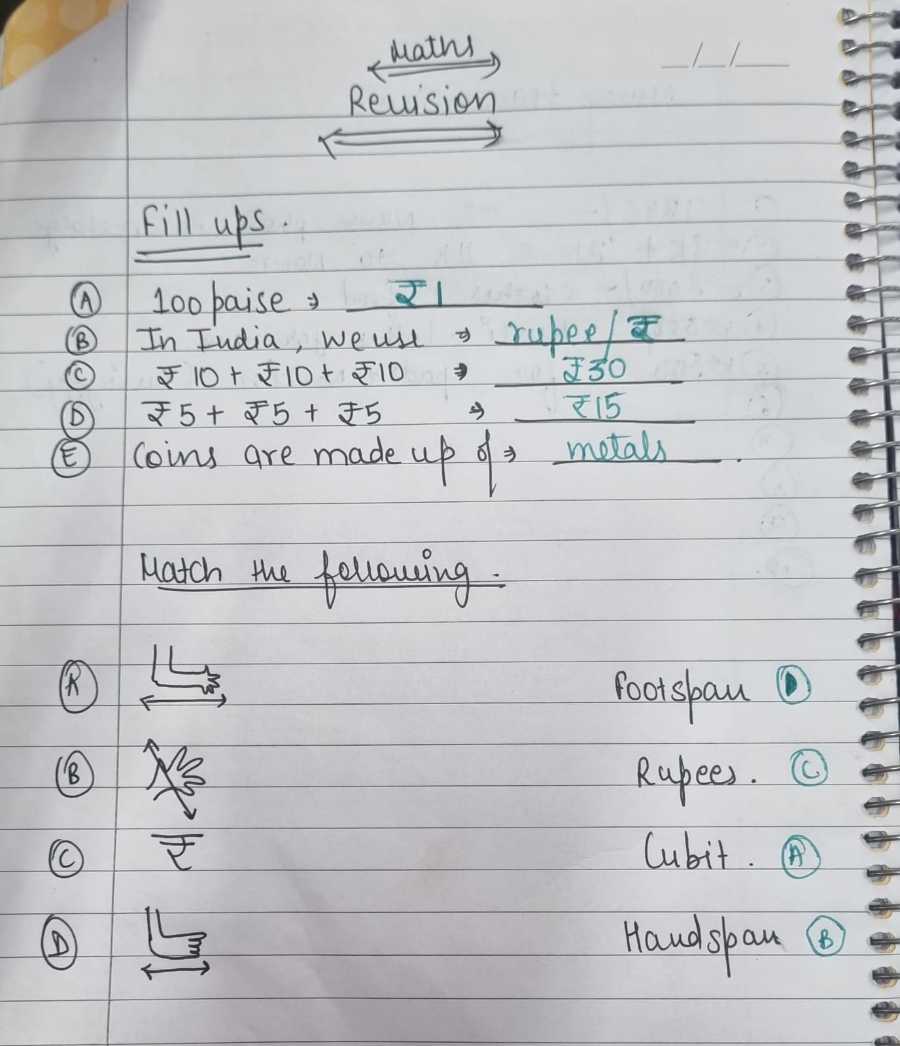 Maths
__/__/__
Revision
Fill ups.
(A) 100 paise → ₹1
(B) In India, we use → rupee/₹
(C) ₹10 + ₹10 + ₹10 → ₹30
(D) ₹5 + ₹5 + ₹5 → ₹15
(E) Coins are made up of → metals.
Match the following.
(A) Footspan (D)
(B) Rupees. (C)
(C) ₹ Cubit. (A)
(D) Handspan (B)